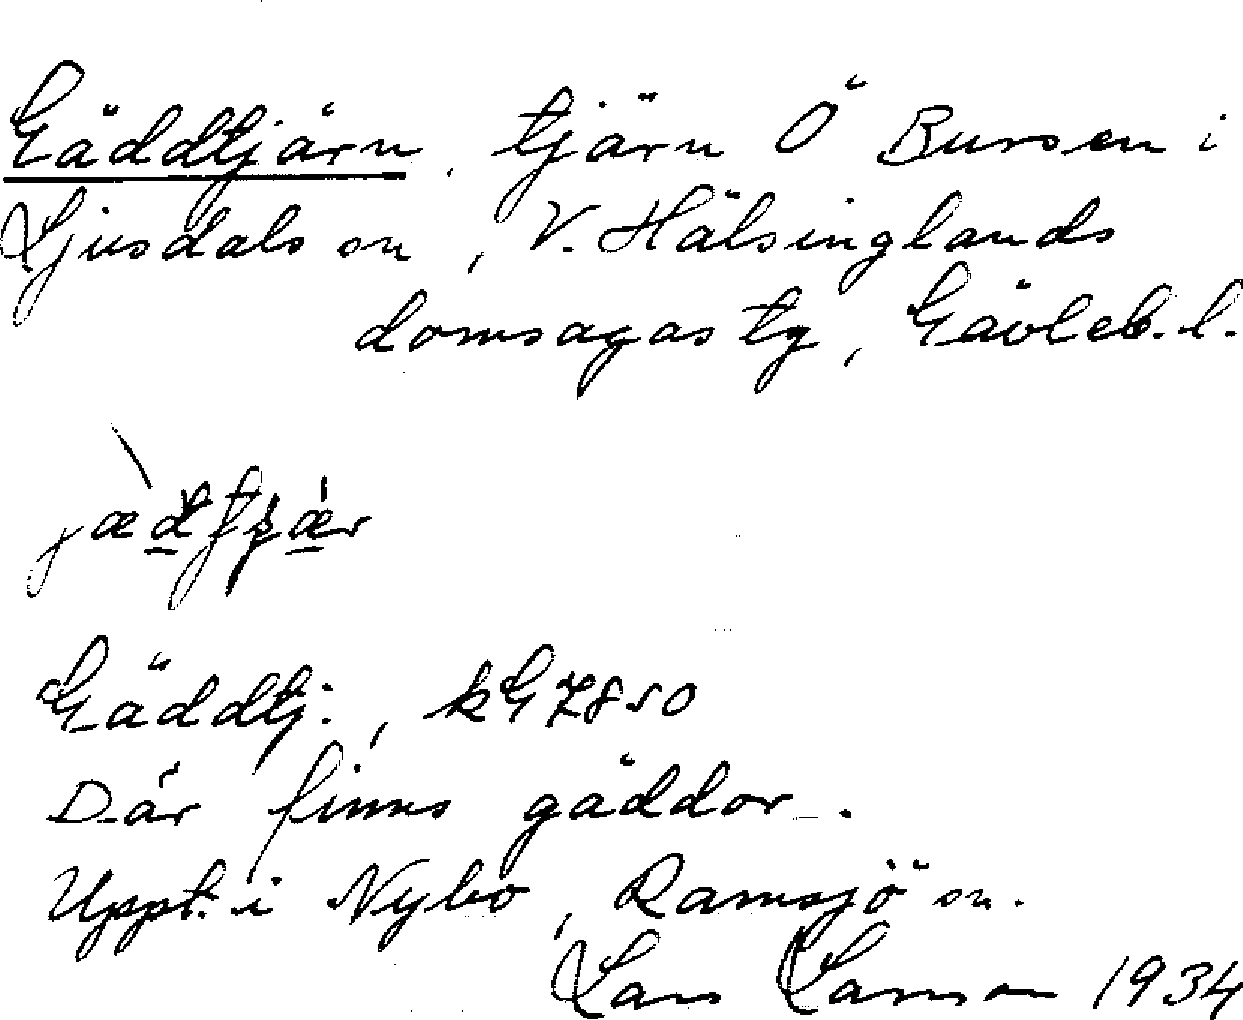 Gäddtjärn, tjärn Ö Bursen i
Ljusdals sn, V. Hälsinglands
domsagas tg, Gävleb. l.
Gäddtj., kG7850
Där finns gäddor.
Uppt. i Nybo, Ramsjö sn.
Lars Larsson 1934